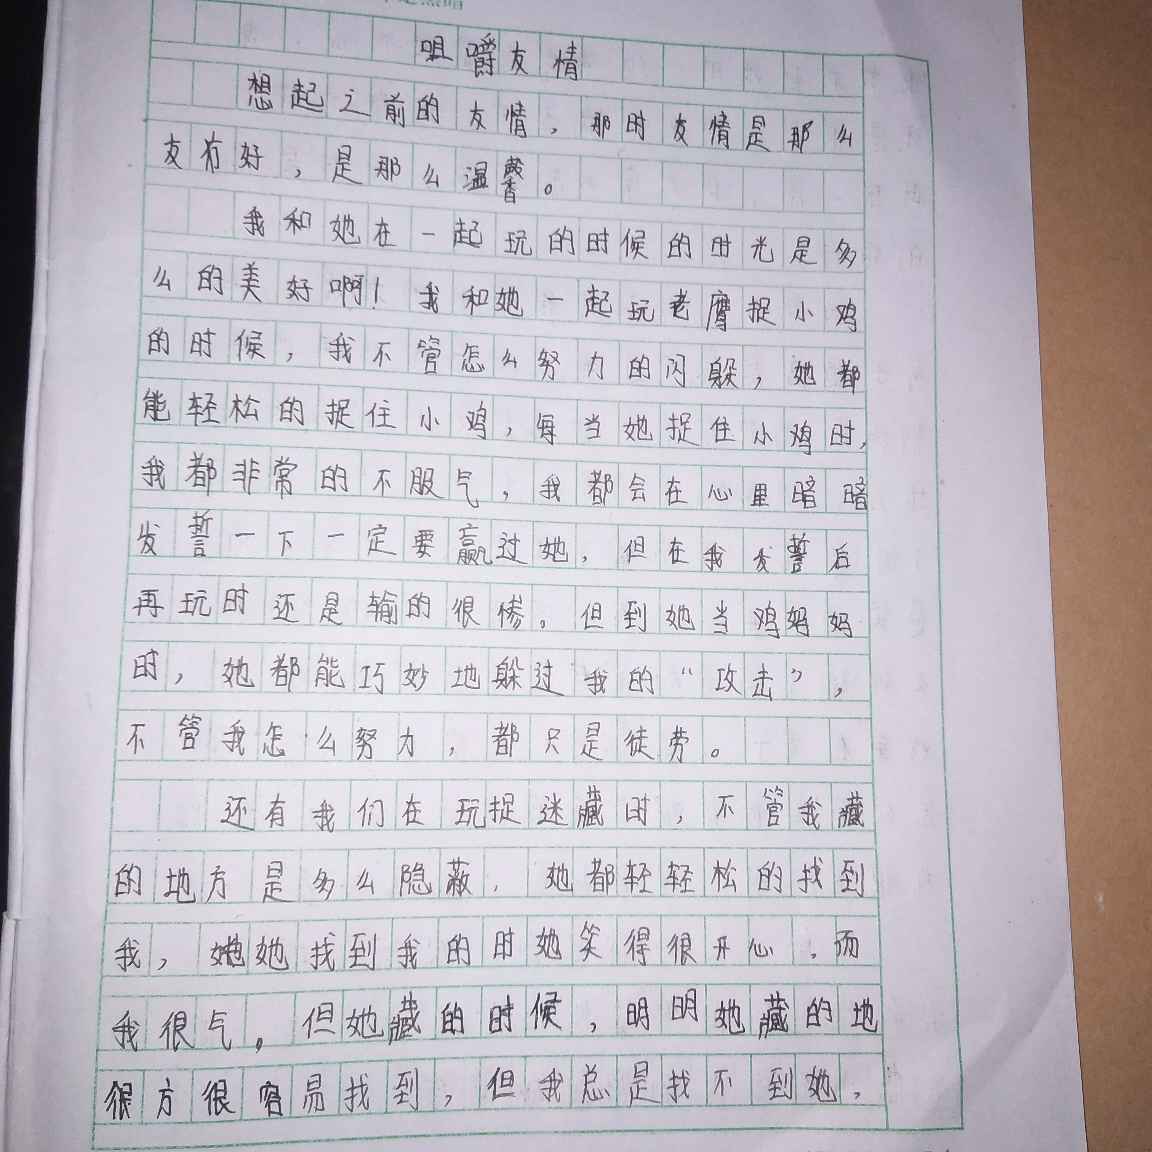 咀嚼友情
想起之前的友情，那时友情是那么
友有好，是那么温馨。
我和她在一起玩的时候的时光是多
么的美好啊！我和她一起玩老鹰捉小鸡
的时候，我不管怎么努力的闪躲，她都
能轻松的捉住小鸡，每当她捉住小鸡时，
我都非常的不服气，我都会在心里暗暗
发誓一下一定要赢过她，但在我发誓后
再玩时还是输的很惨。但到她当鸡妈妈
时，她都能巧妙地躲过我的“攻击”，
不管我怎么努力，都只是徒劳。
还有我们在玩捉迷藏时，不管我藏
的地方是多么隐蔽，她都轻轻松的找到
我，她她找到我的时她笑得很开心，而
我很气。但她藏的时候，明明她藏的地
很方很容易找到，但我总是找不到她，